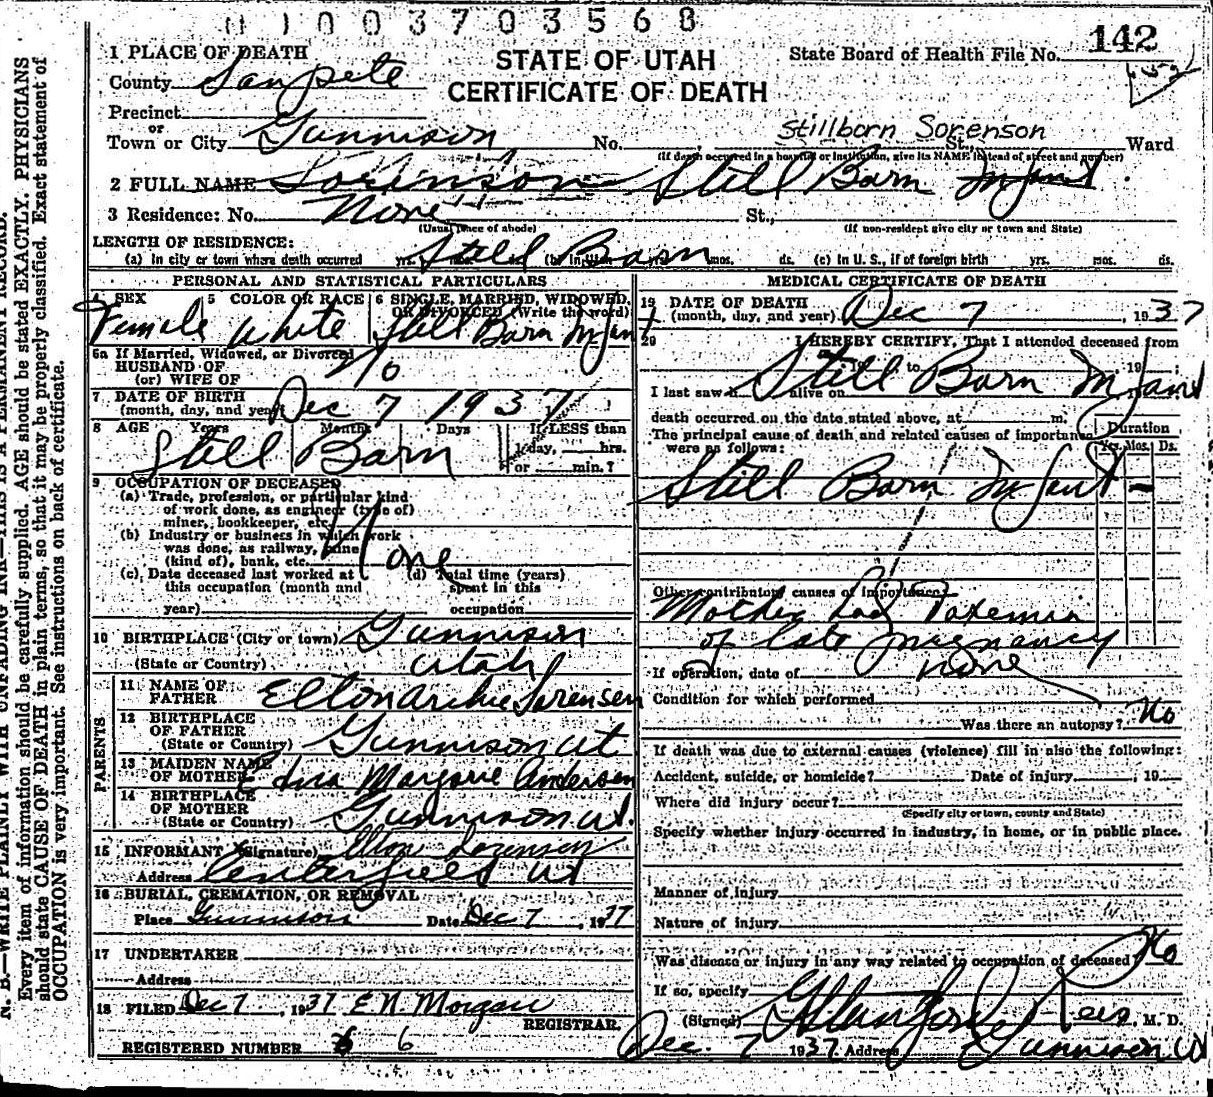 0 1 0 0 3 7 0 3 5 6 8
1 PLACE OF DEATH
STATE OF UTAH
CERTIFICATE OF DEATH
State Board of Health File No. 142
County Sanpete
Precinct
or
Town or City Gunnison No. St., Ward
Stillborn Sorenson
(If death occurred in a hospital or institution, give its NAME instead of street and number)
2 FULL NAME Sorenson Still Barn Infant
3 Residence: No. None St.,
(Usual place of abode) (If non-resident give city or town and State)
LENGTH OF RESIDENCE:
(a) In city or town where death occurred yrs. Still Barn (b) In Utah mos. ds. (c) In U. S., if of foreign birth yrs. mos. ds.
PERSONAL AND STATISTICAL PARTICULARS
4 SEX 5 COLOR OR RACE 6 SINGLE, MARRIED, WIDOWED,
OR DIVORCED (Write the word)
Female White Still Barn Infant
6a If Married, Widowed, or Divorced
HUSBAND OF
(or) WIFE OF
No
7 DATE OF BIRTH
(month, day, and year) Dec 7 1937
8 AGE Years Months Days If LESS than
1 day, hrs.
or min.?
Still Barn
9 OCCUPATION OF DECEASED
(a) Trade, profession, or particular kind
of work done, as engineer (type of)
miner, bookkeeper, etc.
(b) Industry or business in which work
was done, as railway, mine
(kind of), bank, etc.
None
(c) Date deceased last worked at (d) Total time (years)
this occupation (month and spent in this
year) occupation
10 BIRTHPLACE (City or town) Gunnison
(State or Country) Utah
PARENTS
11 NAME OF
FATHER Elton Archie Sorensen
12 BIRTHPLACE
OF FATHER
(State or Country) Gunnison Ut
13 MAIDEN NAME
OF MOTHER Edna Margorie Andersen
14 BIRTHPLACE
OF MOTHER
(State or Country) Gunnison Ut.
15 INFORMANT (Signature) Elton Sorensen
Address Centerfield Ut
16 BURIAL, CREMATION, OR REMOVAL
Place Gunnison Date Dec 7, 1937
17 UNDERTAKER
Address
18 FILED Dec 7, 1937 E N Morgan
REGISTRAR.
REGISTERED NUMBER 6
MEDICAL CERTIFICATE OF DEATH
19 DATE OF DEATH
(month, day, and year) Dec 7, 1937
20 I HEREBY CERTIFY, That I attended deceased from
, 19 to , 19 ;
I last saw h alive on , 19
Still Barn Infant
death occurred on the date stated above, at m.
The principal cause of death and related causes of importance
were as follows:
Duration
Yrs. Mos. Ds.
Still Barn Infant -
Other contributory causes of importance:
Mother had Toxemia
of late pregnancy
If operation, date of none
Condition for which performed
Was there an autopsy? No
If death was due to external causes (violence) fill in also the following:
Accident, suicide, or homicide? Date of injury , 19
Where did injury occur?
(Specify city or town, county and State)
Specify whether injury occurred in industry, in home, or in public place.
Manner of injury
Nature of injury
Was disease or injury in any way related to occupation of deceased? No
If so, specify
(Signed) G Stanford Rees, M. D.
Dec. 7 1937 Address Gunnison Ut
N. B.—WRITE PLAINLY WITH UNFADING INK—THIS IS A PERMANENT RECORD.
Every item of information should be carefully supplied. AGE should be stated EXACTLY. PHYSICIANS
should state CAUSE OF DEATH in plain terms, so that it may be properly classified. Exact statement of
OCCUPATION is very important. See instructions on back of certificate.